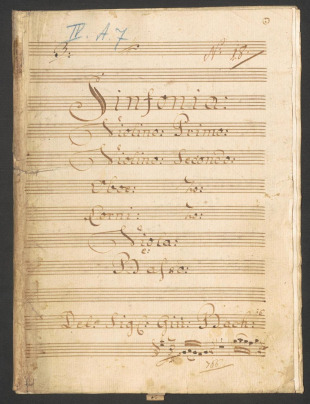 IV. A. 7
No 18
Sinfonia:
Violino: Primo:
Violino: Secondo:
Oboe: 2o:
Corni: 2o:
Viola:
e:
Basso:
Del: Sigre Bach: